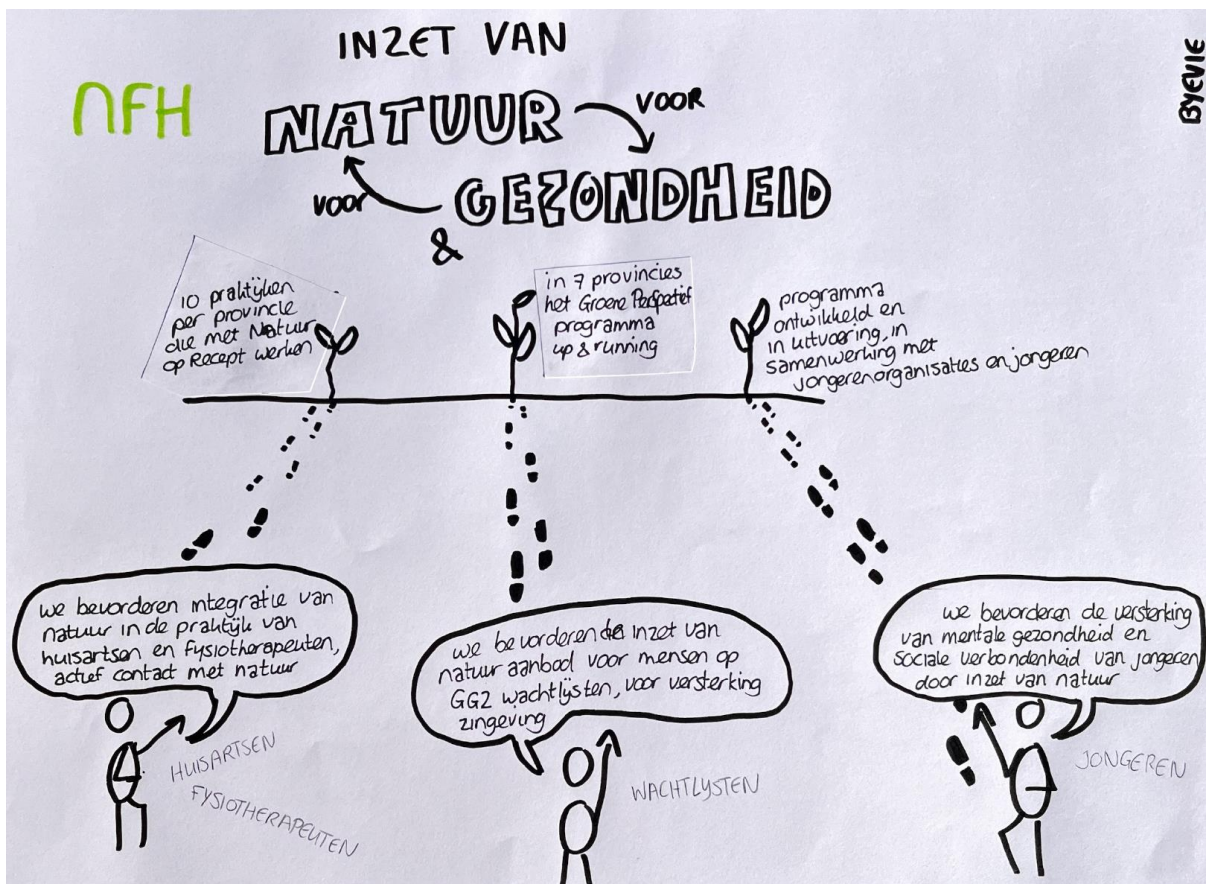 INZET VAN
NFH
NATUUR
VOOR
VOOR
GEZONDHEID
&
BYEVIE
10 praktijken
per provincie
die met Natuur
op Recept werken
in 7 provincies
het Groene Perspectief
programma
up & running
programma
ontwikkeld en
in uitvoering, in
samenwerking met
jongerenorganisaties en jongeren
we bevorderen integratie van
natuur in de praktijk van
huisartsen en fysiotherapeuten,
actief contact met natuur
HUISARTSEN
FYSIOTHERAPEUTEN
we bevorderen de inzet van
natuur aanbod voor mensen op
GGZ wachtlijsten, voor versterking
zingeving
WACHTLIJSTEN
we bevorderen de versterking
van mentale gezondheid en
sociale verbondenheid van jongeren
door inzet van natuur
JONGEREN